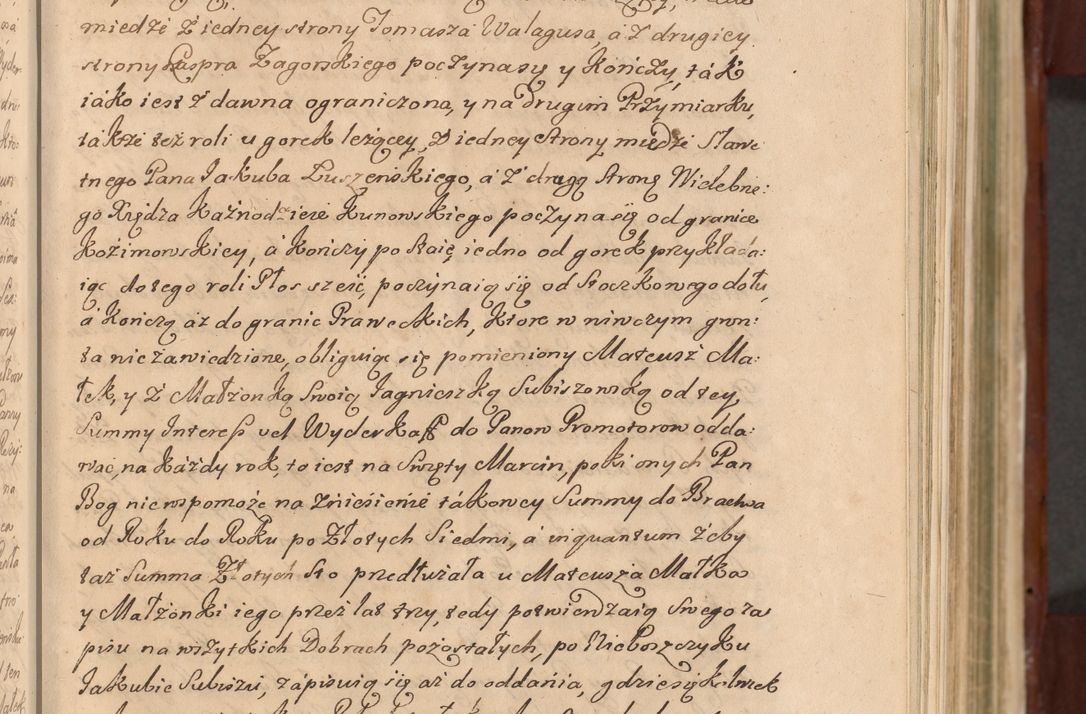 miedźi z iedney strony Tomasza Walagusa, á z drugiey
strony Kaspra Zagorskiego poczynasy y Kończy, ták
iáko iest z dawna ograniczona, y na drugim Przymiarku,
tákże też roli u gorek leżącey, z iedney strony miedźi Sławe
tnego Pana Jakuba Łuszenskiego, á z drugą stroną Wielebne:
go Xiędza Kaźnodzieie Kunowskiego poczyna się od granice
Koźimowskiey, á Kończy po Staię iedno od gorek przykłada:
iąc do tego roli Płos sześć, poczynaią się od Stoczkowego dołu,
á Kończą aż do granic Prawęckich, Ktore w niwczym grun:
ta nie zawiedzione, obliguiąc się pomieniony Mateusz Ma:
łek, y z Małżonką Swoią Jagnieszką Subiszowską od tey,
Summy Interess vel Wyderkaff do Panow Promotorow odda:
wać, na káżdy rok, to iest na Swięty Marcin, poki onych Pan
Bog nie wspomoże na Znieśienié tákowey Summy do Bractwa
od Roku do Roku po Złotych Siedmi, á inquantum żeby
taż Summa Złotych Sto przedłużała u Mateusza Małka
y Małżonki iego przeż lat trzy, tedy potwierdzaią Swego za
pisu na wszytkich Dobrach pozostałych, po Nieboszczyku
Jakubie Subiszu, zápisuią się aż do oddánia, gdzie się kolwiek